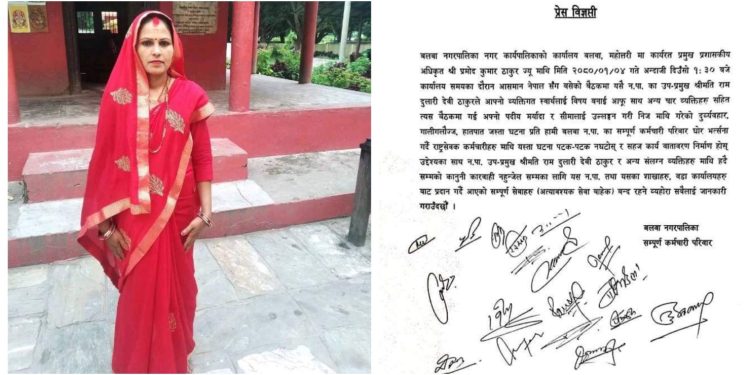 प्रेस विज्ञप्ती
बलबा नगरपालिका नगर कार्यपालिकाको कार्यालय बलबा, महोत्तरी मा कार्यरत प्रमुख प्रशासकीय
अधिकृत श्री प्रमोद कुमार ठाकुर ज्यू माथि मिति २०८०/०१/०४ गते अन्दाजी दिउँसो १:३० बजे
कार्यालय समयका दौरान आसमान नेपाल सँग बसेको बैठकमा यसै न.पा.का उप-प्रमुख श्रीमति राम
दुलारी देवी ठाकुरले आफ्नो व्यक्तिगत स्वार्थलाई विषय बनाई आफू साथ अन्य चार व्यक्तिहरु सहित
त्यस बैठकमा गई अपनो पदीय मर्यादा र सीमालाई उल्लङ्गन गरी निज माथि गरेको दुर्व्यवहार,
गालीगलौज, हातपात जस्ता घटना प्रति हामी बलबा न.पा. का सम्पूर्ण कर्मचारी परिवार घोर भर्त्सना
गर्दै राष्ट्रसेवक कर्मचारीहरु माथि यस्ता घटना पटक-पटक नघटोस् र सहज कार्य वातावरण निर्माण होस्
उद्देश्यका साथ न.पा. उप-प्रमुख श्रीमति राम दुलारी देवी ठाकुर र अन्य संलग्न व्यक्तिहरु माथि हदै
सम्मको कानुनी कारबाही नहुन्जेल सम्मका लागि यस न.पा. तथा यसका शाखाहरु, वडा कार्यालयहरु
बाट प्रदान गर्दै आएको सम्पूर्ण सेवाहरु (अत्यावश्यक सेवा बाहेक) बन्द रहने व्यहोरा सबैलाई जानकारी
गराउँदछौं ।
बलबा नगरपालिका
सम्पूर्ण कर्मचारी परिवार